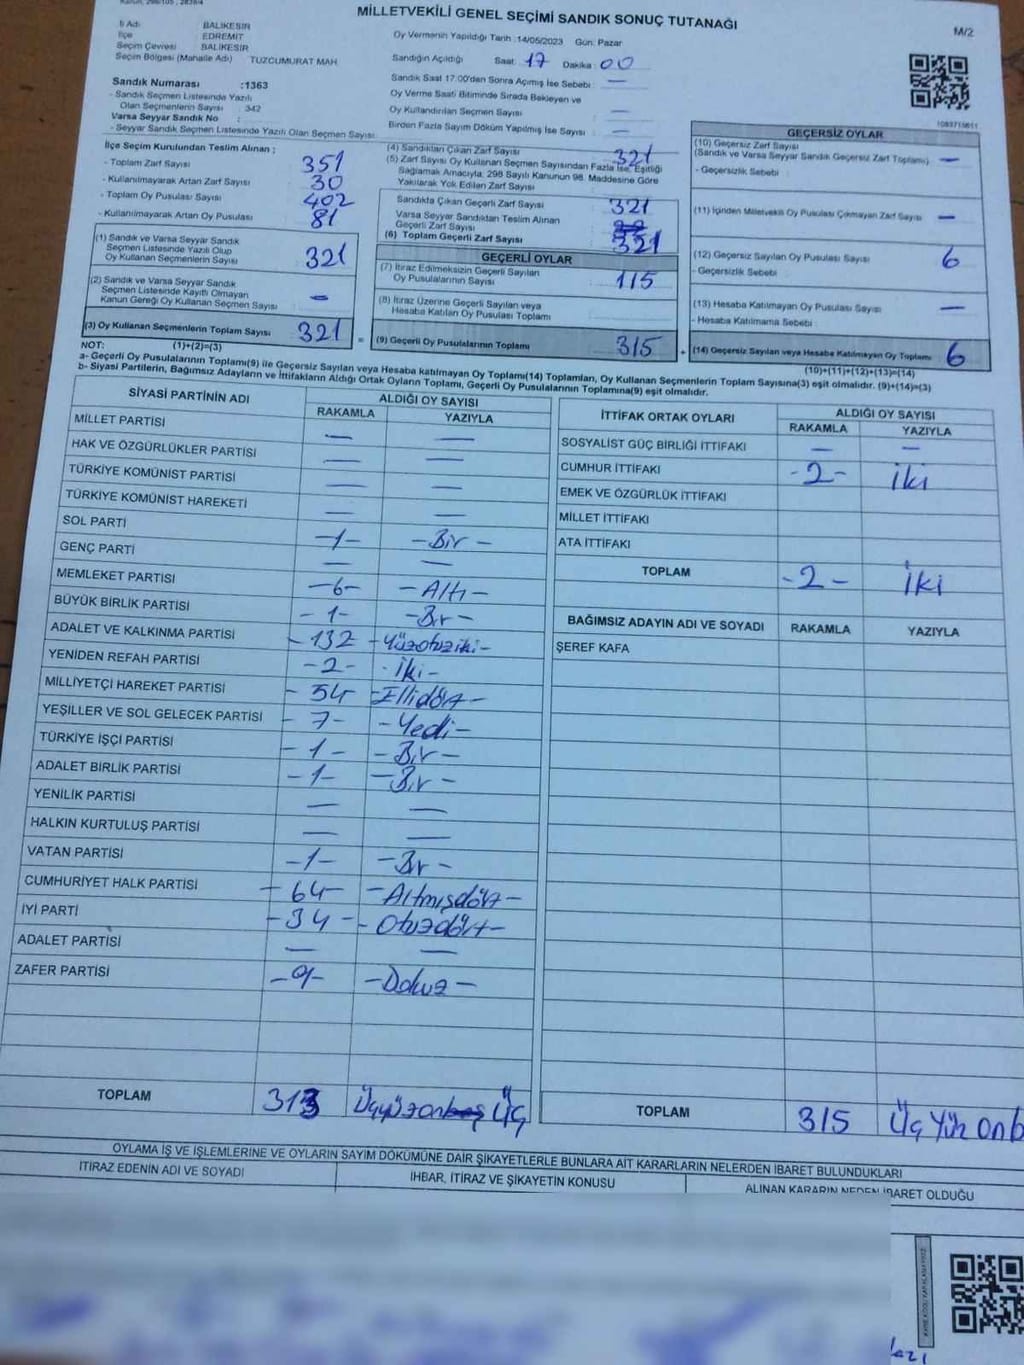 MİLLETVEKİLİ GENEL SEÇİMİ SANDIK SONUÇ TUTANAĞI
M/2
İli Adı : BALIKESİR
İlçe : EDREMİT
Seçim Çevresi : BALIKESİR
Seçim Bölgesi (Mahalle Adı) : TUZCUMURAT MAH
Oy Vermenin Yapıldığı Tarih :14/05/2023 Gün: Pazar
Sandığın Açıldığı Saat: 17 Dakika: 00
Sandık Saat 17:00'den Sonra Açmış İse Sebebi : —
Oy Verme Saati Bitiminde Sırada Bekleyen ve
Oy Kullandırılan Seçmen Sayısı : —
Birden Fazla Sayım Döküm Yapılmış İse Sayısı : —
Sandık Numarası :1363
- Sandık Seçmen Listesinde Yazılı
Olan Seçmenlerin Sayısı : 342
Varsa Seyyar Sandık No :
- Seyyar Sandık Seçmen Listesinde Yazılı Olan Seçmen Sayısı:
İlçe Seçim Kurulundan Teslim Alınan ;
- Toplam Zarf Sayısı 351
- Kullanılmayarak Artan Zarf Sayısı 30
- Toplam Oy Pusulası Sayısı 402
- Kullanılmayarak Artan Oy Pusulası 81
(1) Sandık ve Varsa Seyyar Sandık
Seçmen Listesinde Yazılı Olup
Oy Kullanan Seçmenlerin Sayısı 321
(2) Sandık ve Varsa Seyyar Sandık
Seçmen Listesinde Kayıtlı Olmayan
Kanun Gereği Oy Kullanan Seçmen Sayısı : —
(3) Oy Kullanan Seçmenlerin Toplam Sayısı 321
(1)+(2)=(3)
(4) Sandıktan Çıkan Zarf Sayısı 321
(5) Zarf Sayısı Oy Kullanan Seçmen Sayısından Fazla İse, Eşitliği
Sağlamak Amacıyla, 298 Sayılı Kanunun 98. Maddesine Göre
Yakılarak Yok Edilen Zarf Sayısı
Sandıkta Çıkan Geçerli Zarf Sayısı 321
Varsa Seyyar Sandıktan Teslim Alınan
Geçerli Zarf Sayısı
(6) Toplam Geçerli Zarf Sayısı 321
GEÇERLİ OYLAR
(7) İtiraz Edilmeksizin Geçerli Sayılan
Oy Pusulalarının Sayısı 115
(8) İtiraz Üzerine Geçerli Sayılan veya
Hesaba Katılan Oy Pusulası Toplamı
(9) Geçerli Oy Pusulalarının Toplamı 315
GEÇERSİZ OYLAR
(10) Geçersiz Zarf Sayısı
(Sandık ve Varsa Seyyar Sandık Geçersiz Zarf Toplamı) —
- Geçersizlik Sebebi :
(11) İçinden Milletvekili Oy Pusulası Çıkmayan Zarf Sayısı —
(12) Geçersiz Sayılan Oy Pusulası Sayısı 6
- Geçersizlik Sebebi :
(13) Hesaba Katılmayan Oy Pusulası Sayısı —
- Hesaba Katılmama Sebebi :
(14) Geçersiz Sayılan veya Hesaba Katılmayan Oy Toplamı 6
(10)+(11)+(12)+(13)=(14)
NOT:
a- Geçerli Oy Pusulalarının Toplamı(9) ile Geçersiz Sayılan veya Hesaba katılmayan Oy Toplamı(14) Toplamları, Oy Kullanan Seçmenlerin Toplam Sayısına(3) eşit olmalıdır. (9)+(14)=(3)
b- Siyasi Partilerin, Bağımsız Adayların ve İttifakların Aldığı Ortak Oyların Toplamı, Geçerli Oy Pusulalarının Toplamına(9) eşit olmalıdır.
SİYASİ PARTİNİN ADI ALDIĞI OY SAYISI
RAKAMLA YAZIYLA
MİLLET PARTİSİ — —
HAK VE ÖZGÜRLÜKLER PARTİSİ — —
TÜRKİYE KOMÜNİST PARTİSİ — —
TÜRKİYE KOMÜNİST HAREKETİ — —
SOL PARTİ -1- -Bir-
GENÇ PARTİ — —
MEMLEKET PARTİSİ -6- -Altı-
BÜYÜK BİRLİK PARTİSİ -1- -Bir-
ADALET VE KALKINMA PARTİSİ -132 -Yüzotuziki-
YENİDEN REFAH PARTİSİ -2- -İki-
MİLLİYETÇİ HAREKET PARTİSİ -54 -Ellidört-
YEŞİLLER VE SOL GELECEK PARTİSİ -7- -Yedi-
TÜRKİYE İŞÇİ PARTİSİ -1- -Bir-
ADALET BİRLİK PARTİSİ -1- -Bir-
YENİLİK PARTİSİ — —
HALKIN KURTULUŞ PARTİSİ — —
VATAN PARTİSİ -1- -Bir-
CUMHURİYET HALK PARTİSİ -64- -Altmışdört-
İYİ PARTİ -34- -Otuzdört-
ADALET PARTİSİ — —
ZAFER PARTİSİ -9- -Dokuz-
TOPLAM 313 Üçyüzonbeş Üç
İTTİFAK ORTAK OYLARI ALDIĞI OY SAYISI
RAKAMLA YAZIYLA
SOSYALİST GÜÇ BİRLİĞİ İTTİFAKI — —
CUMHUR İTTİFAKI -2- İki
EMEK VE ÖZGÜRLÜK İTTİFAKI
MİLLET İTTİFAKI
ATA İTTİFAKI
TOPLAM -2- İki
BAĞIMSIZ ADAYIN ADI VE SOYADI RAKAMLA YAZIYLA
ŞEREF KAFA
TOPLAM 315 Üç Yüz onb
OYLAMA İŞ VE İŞLEMLERİNE VE OYLARIN SAYIM DÖKÜMÜNE DAİR ŞİKAYETLERLE BUNLARA AİT KARARLARIN NELERDEN İBARET BULUNDUKLARI
İTİRAZ EDENİN ADI VE SOYADI İHBAR, İTİRAZ VE ŞİKAYETİN KONUSU ALINAN KARARIN NEDEN İBARET OLDUĞU